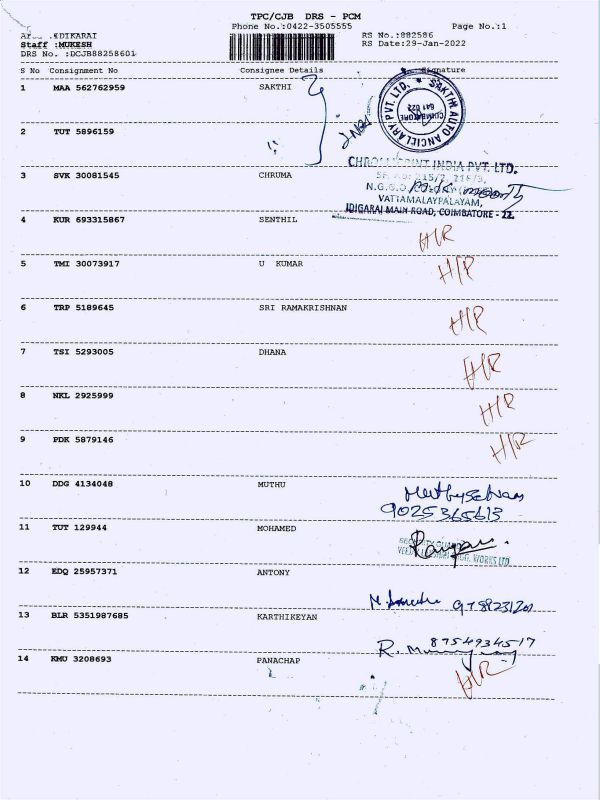 TPC/CJB DRS - PCM
Phone No.:0422-3505555
Page No.:1
RS No.:882586
Staff :MUKESH
RS Date:29-Jan-2022
DRS No. :DCJB88258601
S No Consignment No Consignee Details Signature
1 MAA 562762959 SAKTHI
SAKTHI AUTO ANCIELARY PVT. LTD.
COIMBATORE
641 022
2 TUT 5896159
CHROMOPRINT INDIA PVT. LTD.
3 SVK 30081545 CHRUMA
VATTAMALAYPALAYAM,
IDIGARAI MAIN ROAD, COIMBATORE - 22.
4 KUR 693315867 SENTHIL
H/R
5 TMI 30073917 U KUMAR
H/R
6 TRP 5189645 SRI RAMAKRISHNAN
H/R
7 TSI 5293005 DHANA
H/R
8 NKL 2925999
H/R
9 PDK 5879146
H/R
10 DDG 4134048 MUTHU
9025365613
11 TUT 129944 MOHAMED
12 EDQ 25957371 ANTONY
13 BLR 5351987685 KARTHIKEYAN
8754934517
14 KMU 3208693 PANACHAP
H/R